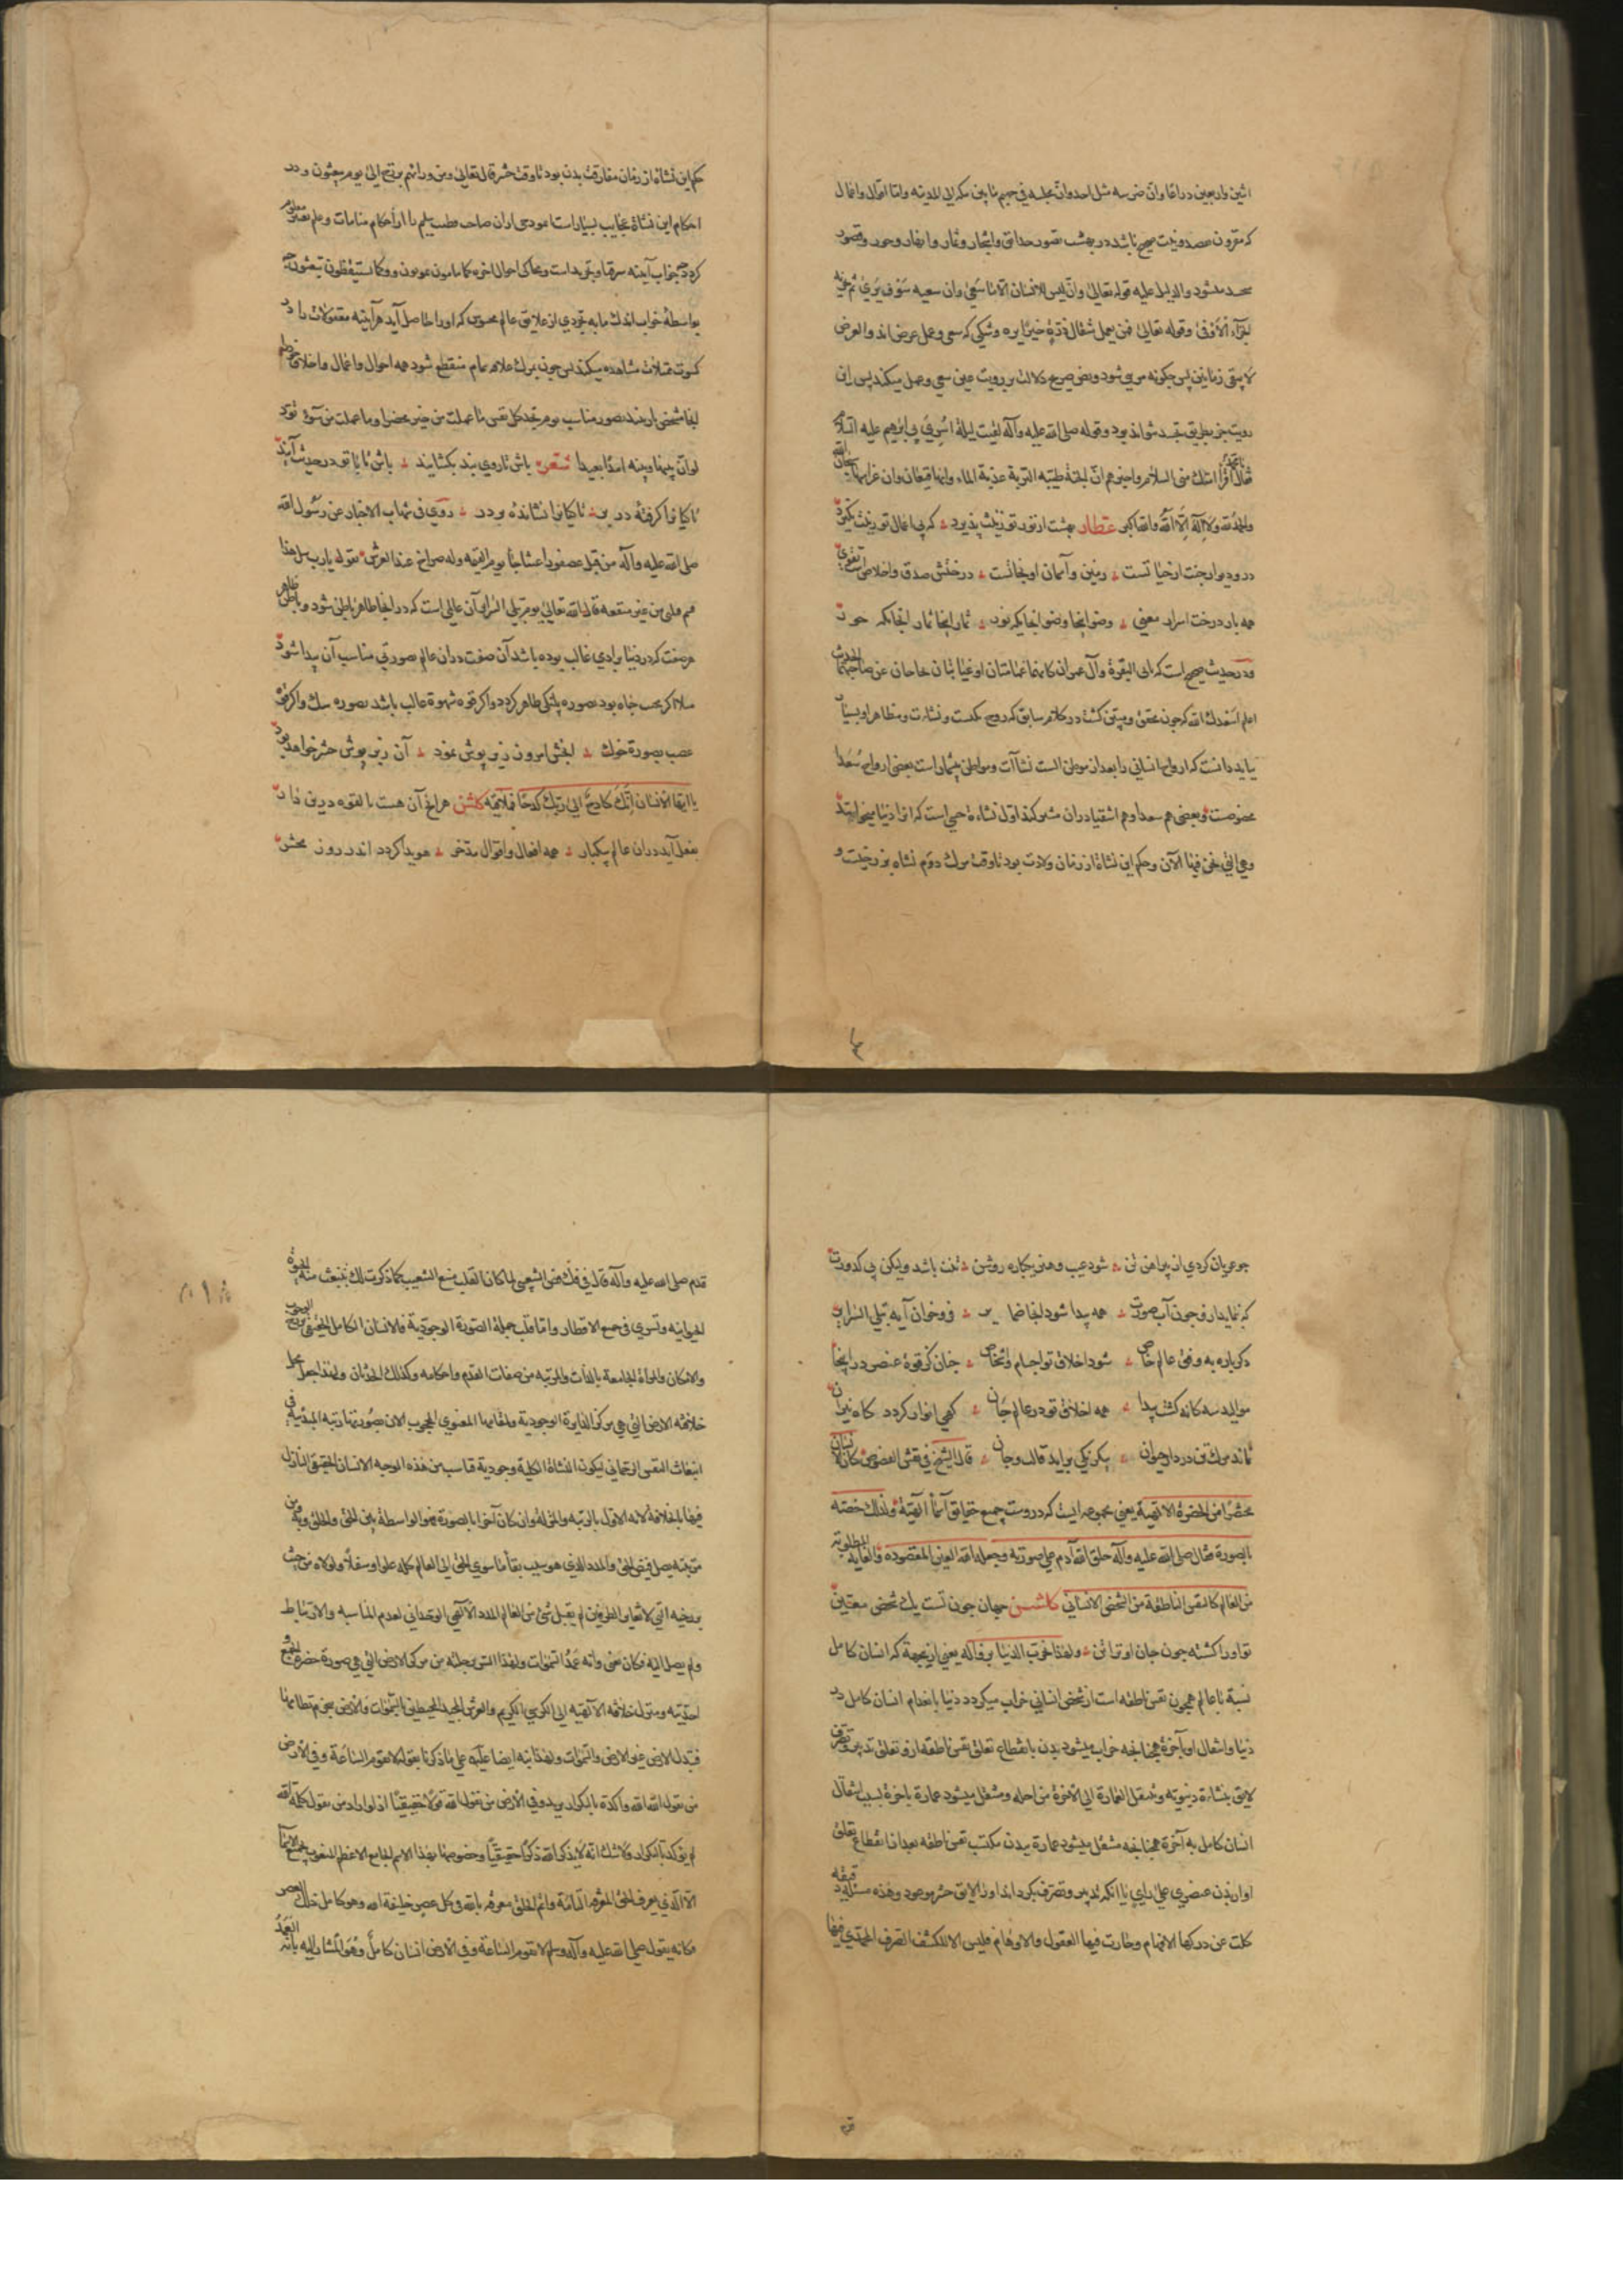 اثنین واربعین دراعا وان ضرسه مثل احد وان مجلسه فی جهنم ما بین مکه الی المدینه واما اقوال وافعال
که مقرون بصدق نیت صحیح باشد در بهشت بصور حدایق واشجار وثمار وانهار وحور وقصور
متجسد میشود والدلیل علیه قوله تعالی وان لیس للانسان الا ما سعی وان سعیه سوف یری ثم یجزیه
الجزاء الاوفی وقوله تعالی فمن یعمل مثقال ذرة خیرا یره وشکی که سعی وعمل عرض اند والعرض
لا یبقی زمانین پس چکونه مریی شود ونص صریح دلالت بر رویت عین سعی وعمل میکند پس این
رویت جز بطریق تجسد نتواند بود وقوله صلی الله علیه وآله لقیت لیلة اسری بی ابرهیم علیه السلام
فقال یا محمد اقرأ امتک منی السلام واخبرهم ان الجنة طیبة التربة عذبة الماء وانها قیعان وان غراسها سبحان الله
والحمد لله ولا اله الا الله والله اکبر عطار بهشت از نور تو زینت پذیرد که پی اعمال تو زینت نکیرد
در ودیوار جنت از حیا تست زمین وآسمان او نجاتست درختش صدق واخلاص است وتقوی
همه بار درخت اسرار معنی وضو اینجا وضو انجا یکه نور نماز اینجا نماز انجا یکه حور
ودر حدیث صحیح است که تاتی البقرة وآل عمران کانهما غمامتان او غیابتان تحاجان عن صاحبهما الحدیث
اعلم اسعدک الله که چون محقق ومبین کشت در کلام سابق که روح یکیست ونشاءت ومظاهر او بسیار
بباید دانست که ارواح انسانی را بعد از موطن الست نشآت ومواطن بیشمار است بعضی ارواح سعدا
مخصوصست وبعضی هم سعدا وهم اشقیا دران مشترکند اول نشاءة حسی است که انرا دنیا میخوانند
وهی التی نحن فیها الآن وحکم این نشاة از زمان ولادت بود تا وقت مرک دوم نشاه برزخیت و
حکم این نشاة از زمان مفارقت بدن بود تا وقت حشر قال تعالی ومن ورائهم برزخ الی یوم یبعثون ودر
احکام این نشاة عجایب بسیار است نمودجی ازان صاحب فطنت سلیم را از احکام منامات وعلم تعبیر معلوم
کردد چه خواب آینه سر قیاست وحاکی احوال اخره کما تنامون تموتون وکما تستیقظون تبعثون چه
بواسطهٔ خواب اندک مایه تجردی از علایق عالم محسوس که او را حاصل آید هر آینه معقولات را در
کسوت تمثلات مشاهده میکند پس چون بمرک علاقه تمام منقطع شود همه احوال واعمال واخلاق
انجا مشخص باشد بصور مناسب یوم تجد کل نفس ما عملت من خیر محضرا وما عملت من سوء تود
لو ان بینها وبینه امدا بعیدا شعر باش تا روی بند بکشایند باش تا با تو در حدیث آیند
تا کیا نرا کرفتهٔ در بر تا کیا نرا نشاندهٔ بر در روی فی شهاب الاخبار عن رسول الله
صلی الله علیه وآله من قتل عصفورا عبثا جاء یوم القیمه وله صراخ عند العرش بقوله یا رب سل هذا
فیم قتلنی من غیر منفعه قال الله تعالی یوم تبلی السرایر آن عالمی است که در انجا ظاهر باطن شود وباطن ظاهر
هر صفت که در دنیا بر آدمی غالب بوده باشد آن صفت دران عالم بصورتی مناسب آن پیدا شود
مثلا اکر محب جاه بود بصوره پلنکی ظاهر کردد واکر قوه شهوة غالب باشد بصوره سک واکر قوة
غضب بصورة خوک لبخش ابرون زیر پوش نمود آن زیر پوش حشر خواهد بود
یا ایها الانسان انک کادح الی ربک کدحا فملاقیه کلشن هر انج آن هست بالقوه درین دار
بفعل آید دران عالم بیکبار همه افعال واقوال مدخر هویدا کردد اندر روز محشر
چو عریان کردی از پیراهن تن شود عیب وهنر یکباره روشن تنت باشد ولیکن بی کدورت
که بنماید ازو چون آب صورت همه پیدا شود انجا ضمایر فرو خوان آیه تبلی السرایر
دکر باره به وفق عالم خاص شود اخلاق تو اجسام واشخاص چنان کز قوة عنصر در اینجا
موالید سه کانه کشت پیدا همه اخلاق تو در عالم جان کهی انوار کردد کاه نیران
نماند مرک تن در دار حیوان بیکرنکی براید قالب وجان قال الشیخ فی نقش الفصوص کان الانسان
مختصرا من الحضرة الالهیة یعنی مجموعه ایست که دروست جمیع حقایق آسما آلهیة ولذلک خصه
بالصورة فقال صلی الله علیه وآله خلق الله آدم علی صورته وجعله الله العین المقصوده والغایة المطلوبة
من العالم کالنفس الناطقة من الشخص الانسانی کلشن جهان چون تست یک شخص معین
تو او را کشته چون جان او ترا تن ولهذا خرب الدنیا بزواله یعنی از ینجهة که انسان کامل
نسبة با عالم همچون نفس ناطقه است از شخص انسانی خراب میکردد دنیا بانعدام انسان کامل در
دنیا وانتقال او بآخرة همچنانچه خراب میشود بدن بانقطاع تعلق نفس ناطقه ازو تعلق تدبیر وتصرف
لایق بنشاءة دنیویه وتنتقل العمارة الی الاخرة من اجله ومنتقل میشود عمارة باخرة بسبب انتقال
انسان کامل به آخرة همچنانچه منتقل میشود عمارة ببدن مکتسب نفس ناطقه بعد از انقطاع تعلق
او از بدن عنصری علی رای یا انکه تدبیر وتصرف بکرداند او را لایق حشر موعود وهذه مسئلة دقیقه
کلت عن درکها الافهام وحارت فیها العقول والاوهام فلیس الا للکشف الصرف المحمدی فیها
قدم صلی الله علیه وآله قال فی فک فص الشعیبی لما کان القلب منبع الشعیب کما ذکرت لک تنبعث منه الحیوة
الحیوانیه وتسری فی جمیع الاقطار واما قلب جملة الصورة الوجودیة فالانسان الکامل الحقیقی برزخ الوجوب
والامکان والمرآة الجامعة بالذات والمرتبه من صفات القدم واحکامه وکذلک الحدثان ولهذا جعل محل
خلافته الارض التی هی مرکز الدایرة الوجودیة ولمقامها المعنوی المحجوب الان بصورتها رتبة المبدئیة فی
انبعاث النفس الرحمانی لیکون النشاة الکلیة وجودیة قاسب من هذه الوجه الانسان الحقیقی النازل
فیها بالخلافة لانه الاول بالرتبه والمنزلة وان کان آخرا بالصورة فهو الواسطة بین الحق والخلق وبه ومن
مرتبته یصل فیض الحق والمدد الذی هو سبب بقاء ما سوی الحق الی العالم کله علوا وسفلا ولولاه من حیث
برزخیته التی لا تغایر الطرفین لم یقبل شیء من العالم المدد الالهی الوحدانی لعدم المناسبه والارتباط
ولم یصل الیه فکان یفنی وانه عمد السموات ولهذا السر برحلته من مرکز الارض التی هی صورة حضرة الجمع و
احدیته ومنزل خلافته الالهیه الی الکرسی الکریم والعرش المجید المحیطین بالسموات والارض ینخرم نظامهما
فیبدل الارض غیر الارض والسموات ولهذا نبه ایضا علیه علی ما ذکرنا بقوله لا تقوم الساعة وفی الارض
من یقول الله الله واکده بالتکرار یرید وفی الارض من یقول الله قولا حقیقیا اذ لو اراد من یقول کلمة الله
لم یؤکد بالتکرار ولا شک انه لا یذکر الله ذکرا حقیقیا وخصوصا بهذا الاسم الجامع الاعظم المنعوت بجمیع الاسما
الا الذی یعرف الحق المعرفه التامة واتم الخلق معرفة بالله فی کل عصر خلیفة الله وهو کامل ذلک العصر
فکانه یقول صلی الله علیه وآله وسلم لا تقوم الساعة وفی الارض انسان کامل وهو المشار الیه بانه العمد